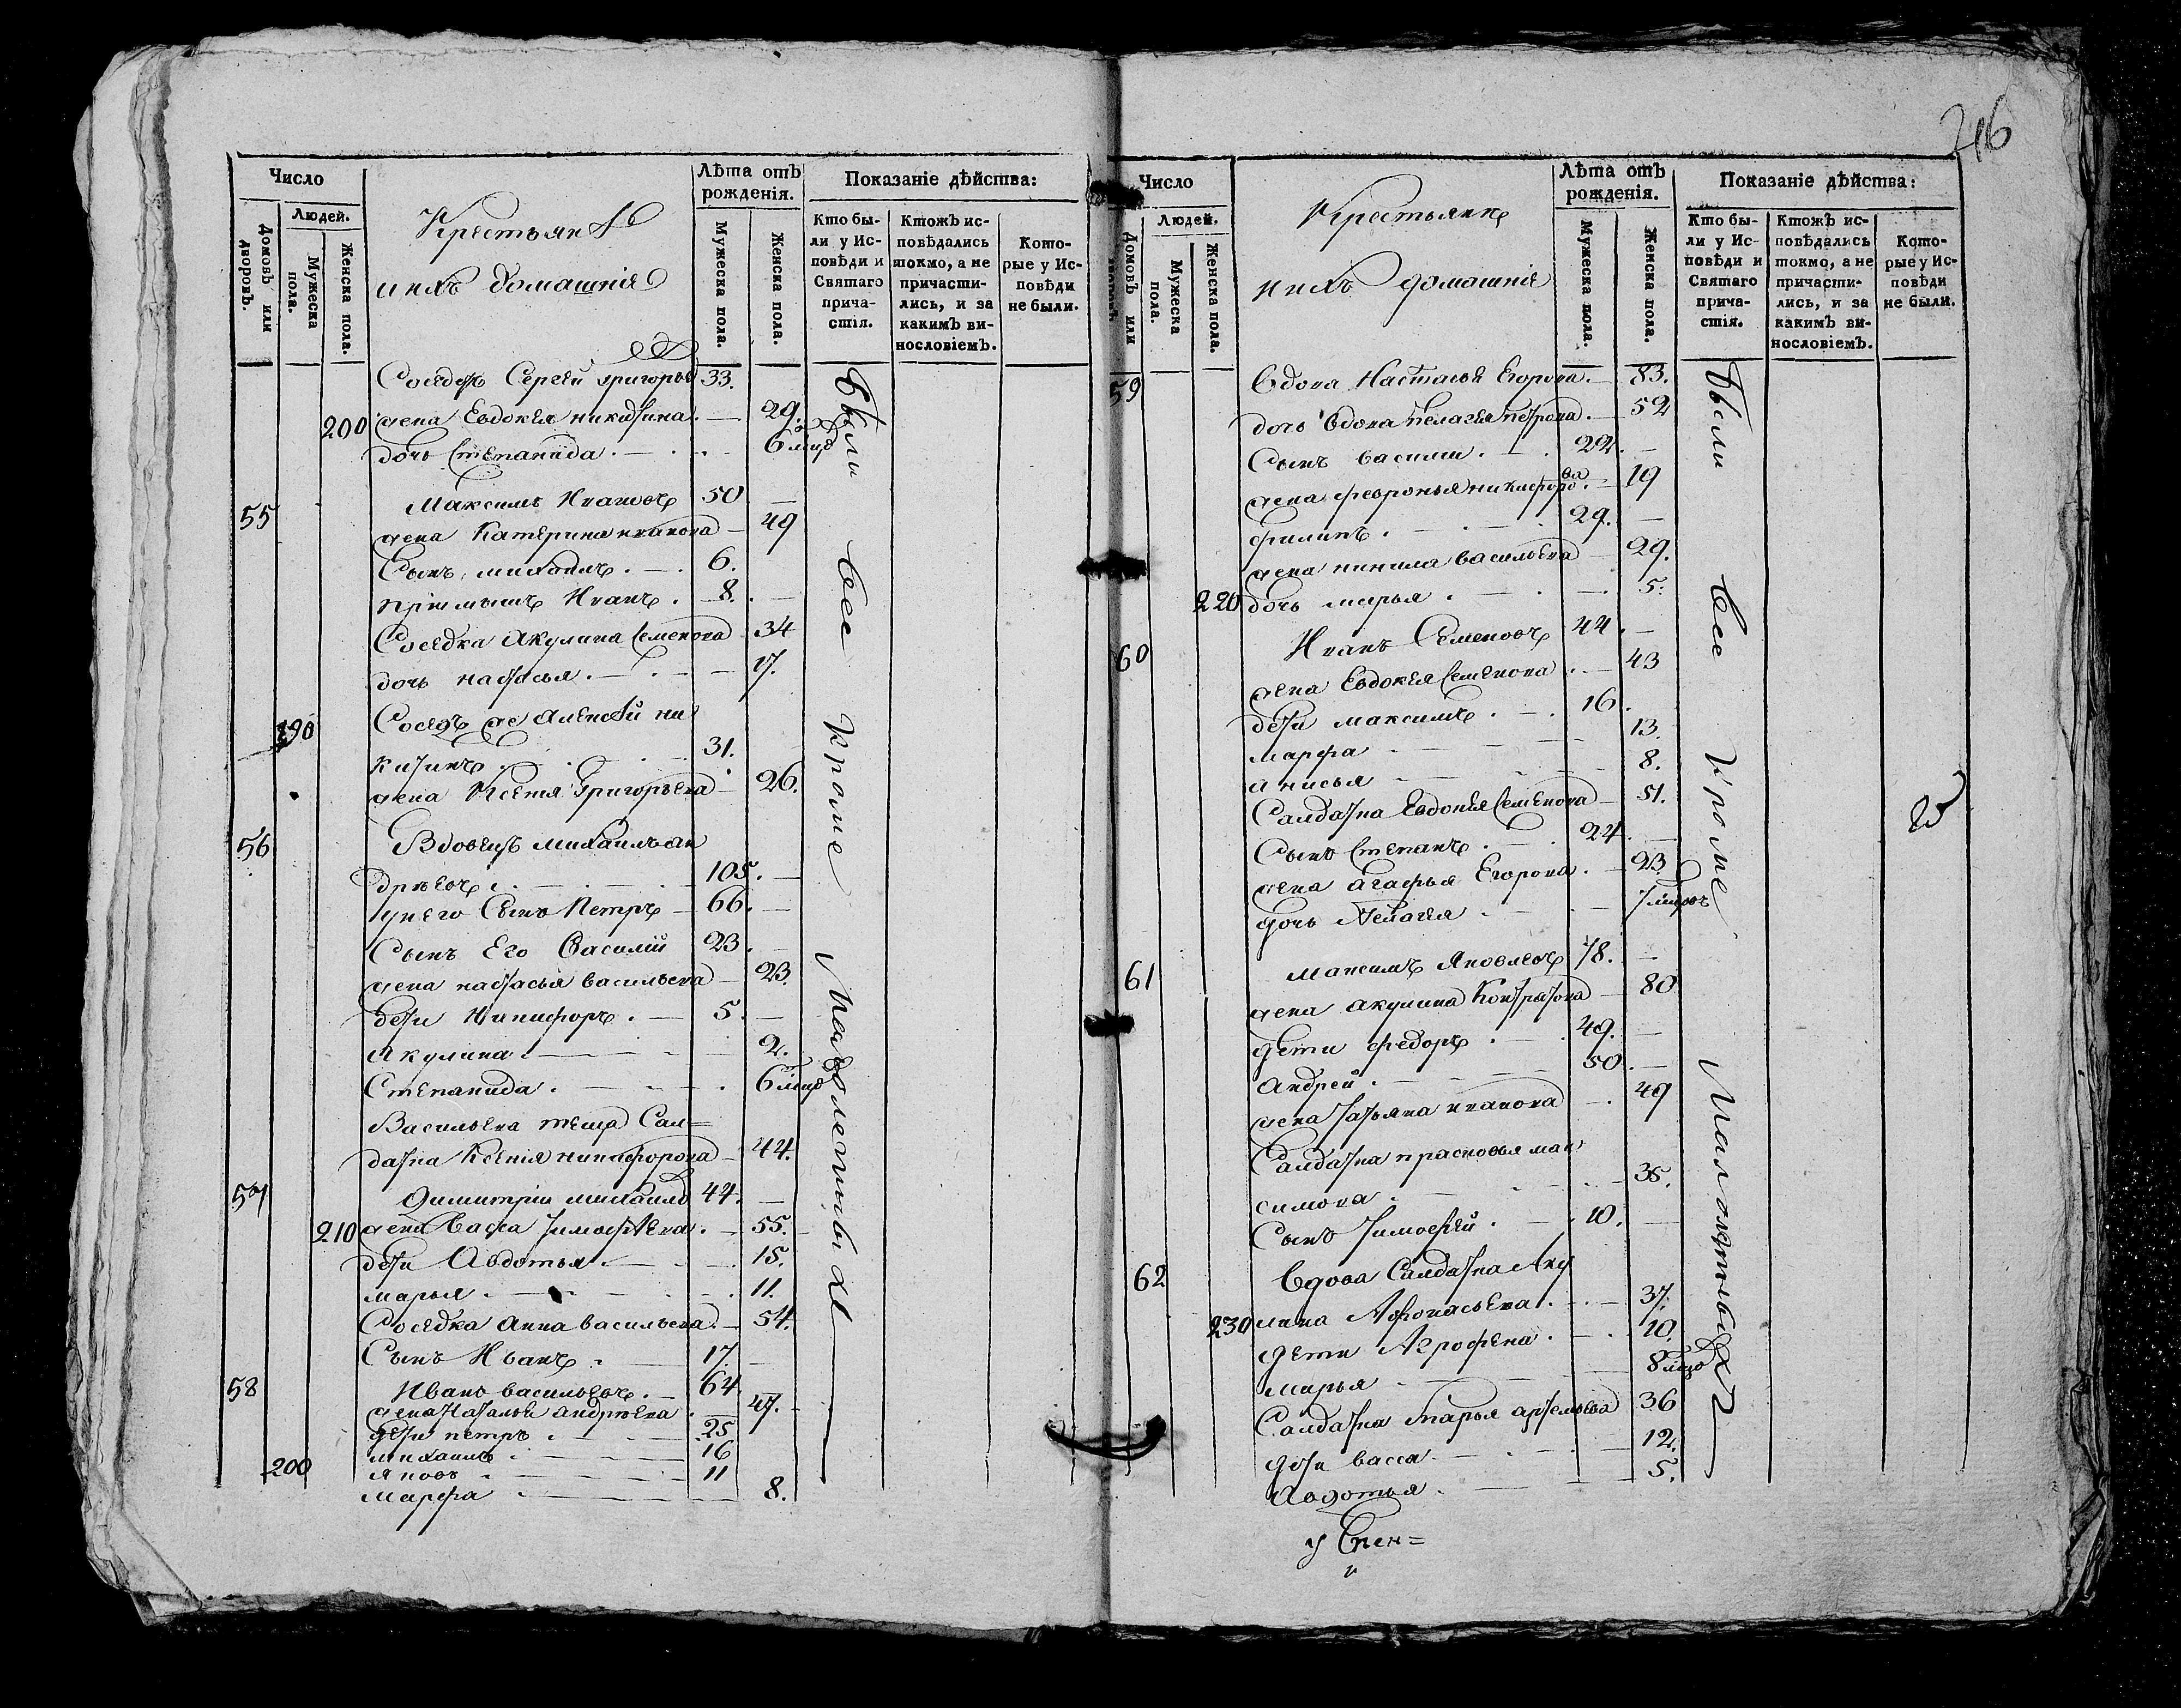 246
Число
Людей.
Домовъ или дворовъ.
Мужеска пола.
Женска пола.
Крестьяне
и ихъ домашнія
Лѣта отъ рожденія.
Мужеска пола.
Женска пола.
Показаніе дѣйства:
Кто были у Исповѣди и Святаго причастія.
Ктожъ исповѣдались токмо, а не причастились, и за какимъ винословіемъ.
Которые у Исповѣди не были.
Соседъ Сергей григорьев 33.
200 жена Евдокея никитина. 29.
дочь Степанида. 6 мцо
55 Максимъ Ивановъ 50
жена Катерина иванова 49
Сынъ михаилъ. 6.
пріимышъ Иванъ. 8.
Соседка Акулина Семенова 34
дочь настасья. 17.
190 Соседъ же Алексей ни
китинъ. 31.
жена Ксенія Григорьева 26.
56 Вдовецъ михаилъ ан
дреевъ. 105.
у него Сынъ Петръ 66.
Сынъ Его Василій 23.
жена настасья васильева 23.
дети Никифоръ. 5.
Якулина. 2.
Степанида. 6 мцо
Васильева теща Сал=
датка Ксенія никифорова 44.
57 Димитрій михаилов 44.
210 жена Васса Тимофеева. 55.
дети Авдотья. 15.
марья. 11.
Соседка Анна васильева. 54.
Сынъ Иванъ. 17.
58 Иванъ васильевъ. 64
жена Наталья андреева 47.
дети петръ. 25
михаилъ. 16
200 яковъ. 11
марфа 8.
были все кроме Малолетныхъ
Число
Людей.
Домовъ или дворовъ.
Мужеска пола.
Женска пола.
Крестьяне
и ихъ домашнія
Лѣта отъ рожденія.
Мужеска пола.
Женска пола.
Показаніе дѣйства:
Кто были у Исповѣди и Святаго причастія.
Ктожъ исповѣдались токмо, а не причастились, и за какимъ винословіемъ.
Которые у Исповѣди не были.
59 Вдова Настасья Егорова. 83.
дочь вдова пелагея петрова. 52
Сынъ василій. 22.
жена февронья никифорова. 19
филипъ. 29.
жена нинила васильева 29.
220 дочь марья. 5.
60 Иванъ Семеновъ 44.
жена Евдокея Семенова. 43
дети максимъ. 16.
марфа 13.
анисья 8.
Салдатка Евдокея Семенова 51.
Сынъ Степанъ. 24.
жена агафья Егорова. 23.
дочь Пелагея 7 мцовъ
61 максимъ Яковлевъ 78.
жена акулина Кондратова 80
дети федоръ. 49.
Андрей. 50.
жена татьяна иванова 49
Салдатка прасковья мак
симова. 35.
Сынъ Тимофей. 10.
62 Вдова Салдатка Аку
230 лина Афонасьева. 37.
дети Агрофена. 10.
марья 8 мцо
Салдатка марья артемьева 36
дети васса. 12.
Авдотья. 5.
были все кроме Малолетныхъ